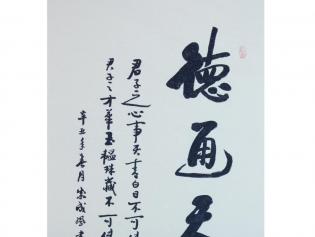 德通天
君子之心事天青白日不可使
君子之才華玉韞珠藏不可使
辛丑年春月